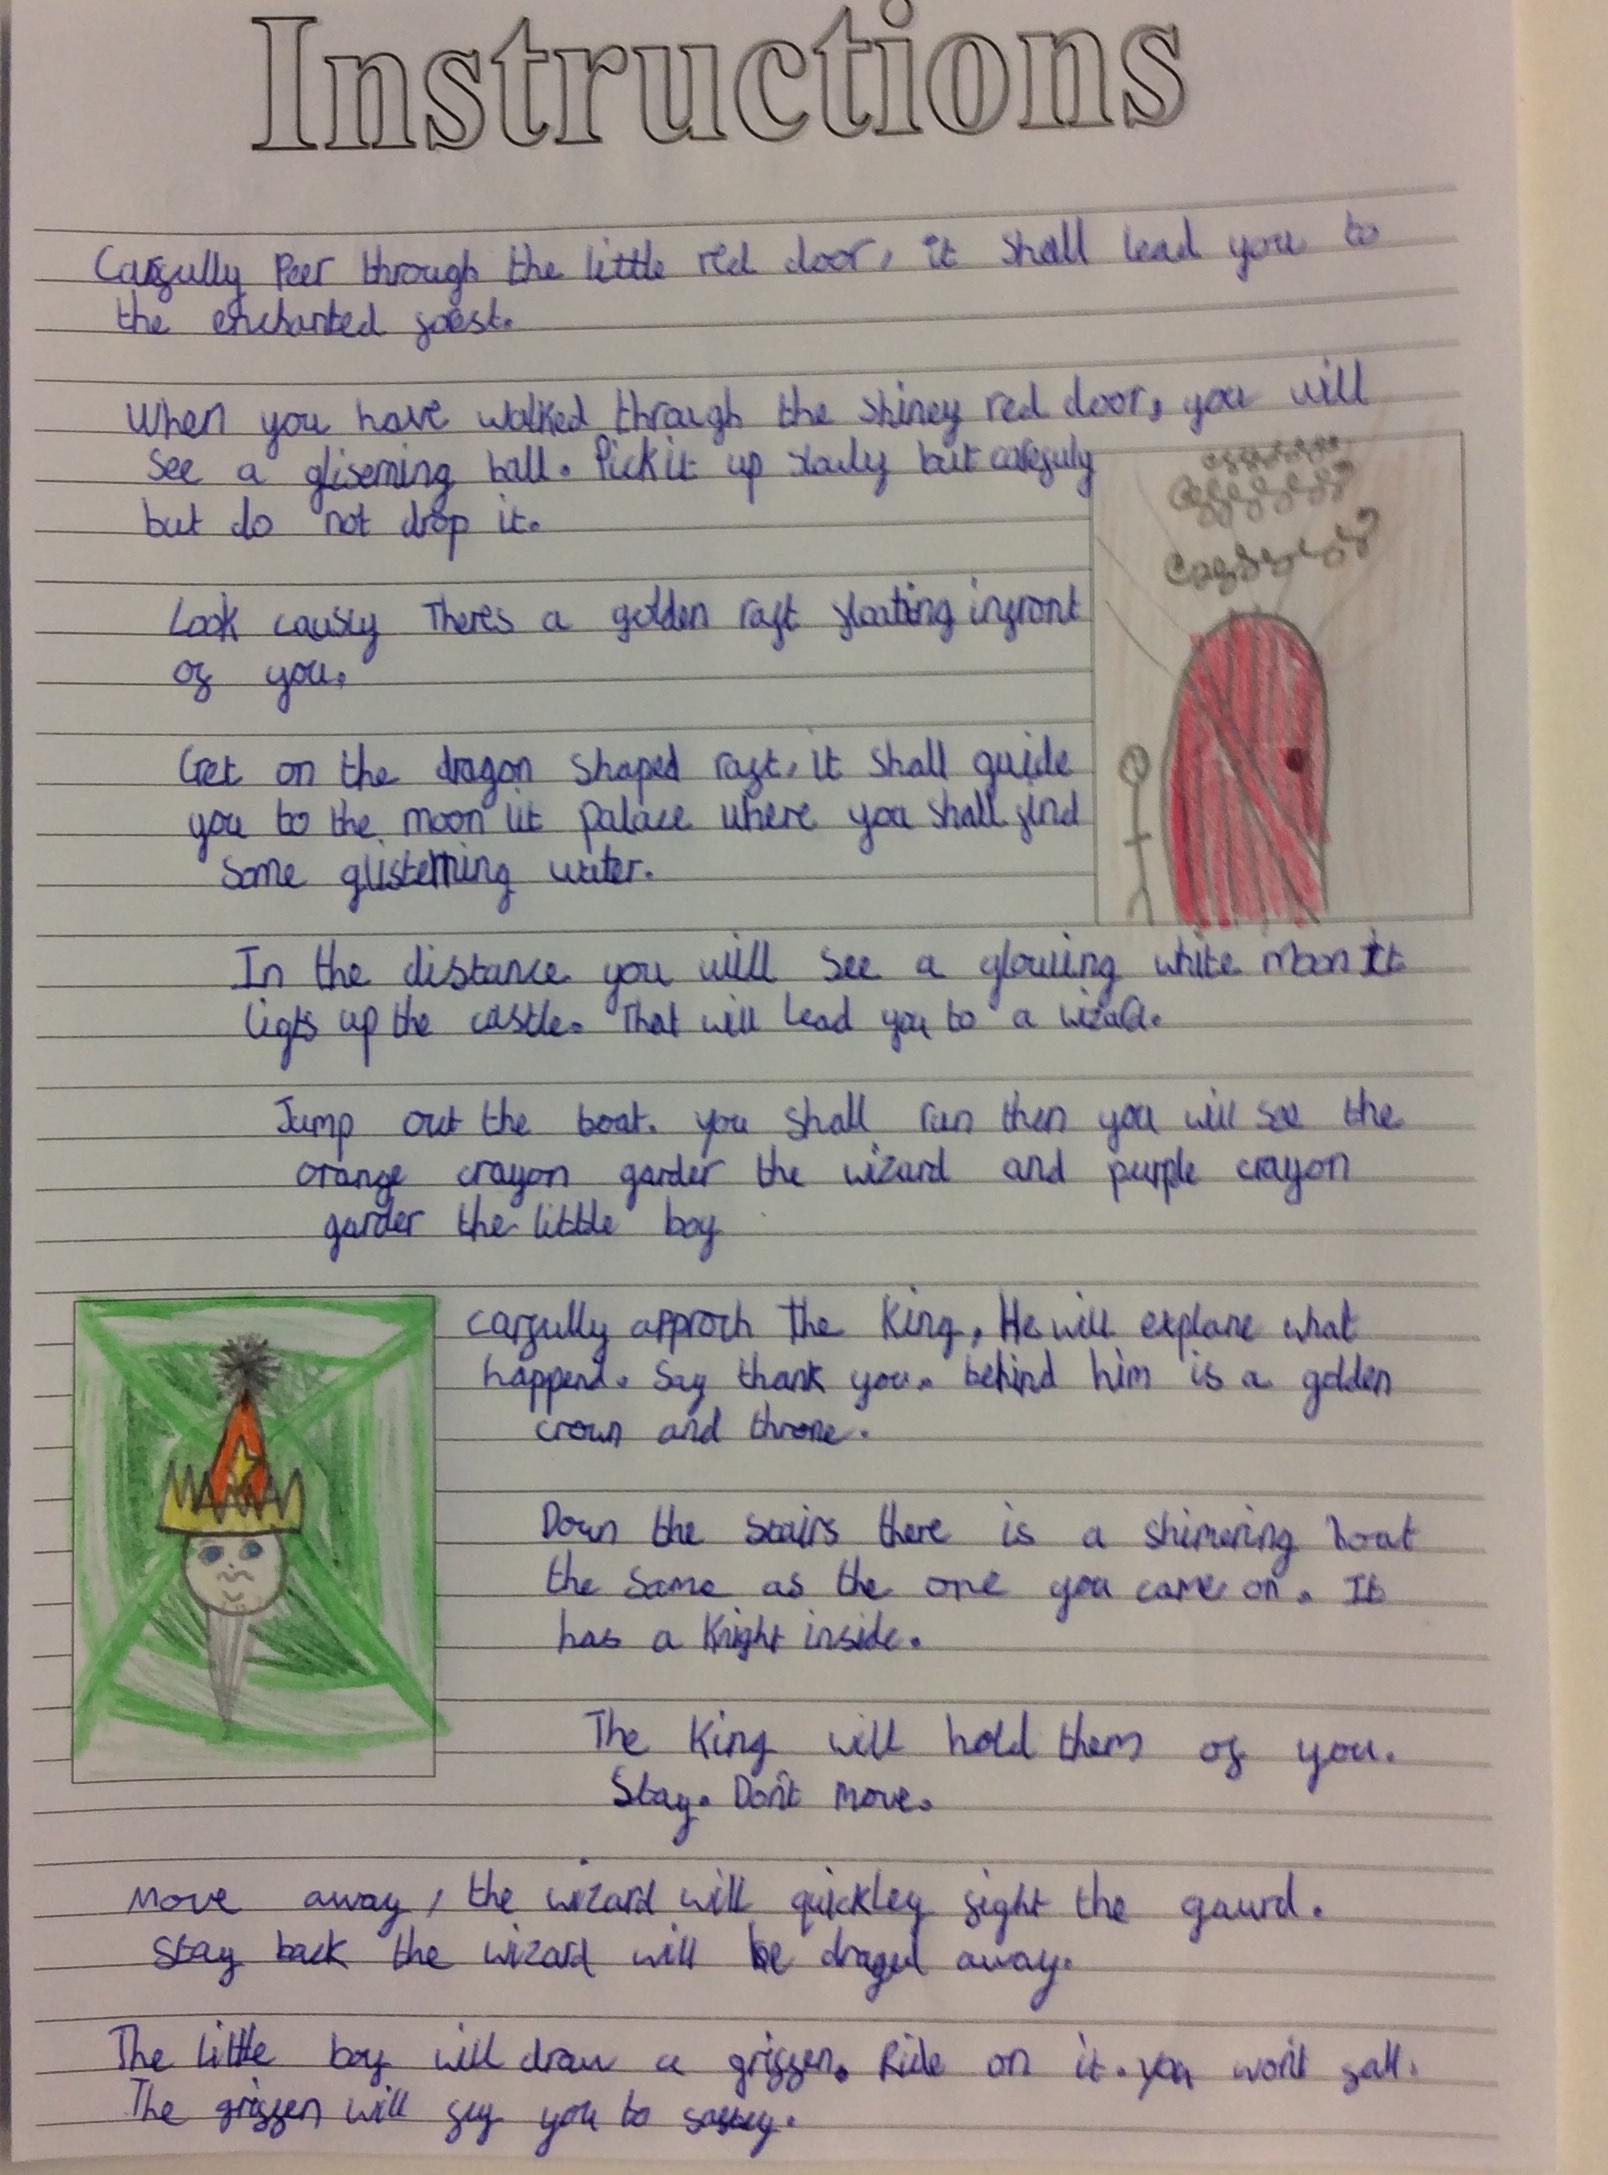 Instructions
Carefully Peer through the little red door, it shall lead you to
the enchanted forest.
When you have walked through the shiney red door, you will
see a glisening ball. Pick it up slowly but carefuly
but do not drop it.
Look causly There's a golden raft floating infront
of you.
Get on the dragon shaped raft, it shall guide
you to the moon lit palace where you shall find
some glisterning water.
In the distance you will see a glowing white moon It
lights up the castle. That will lead you to a wizard.
Jump out the boat. you shall run then you will see the
orange crayon garder the wizard and purple crayon
garder the little boy
carfully approch The King, He will explane what
happend. Say thank you. behind him is a golden
crown and throne.
Down the stairs there is a shimering boat
the same as the one you came on. It
has a Knight inside.
The King will hold them of you.
Stay. Don't move.
Move away, the wizard will quickley fight the gaurd.
Stay back the wizard will be draged away.
The little boy will draw a griffen. Ride on it. you won't fall.
The griffen will fly you to